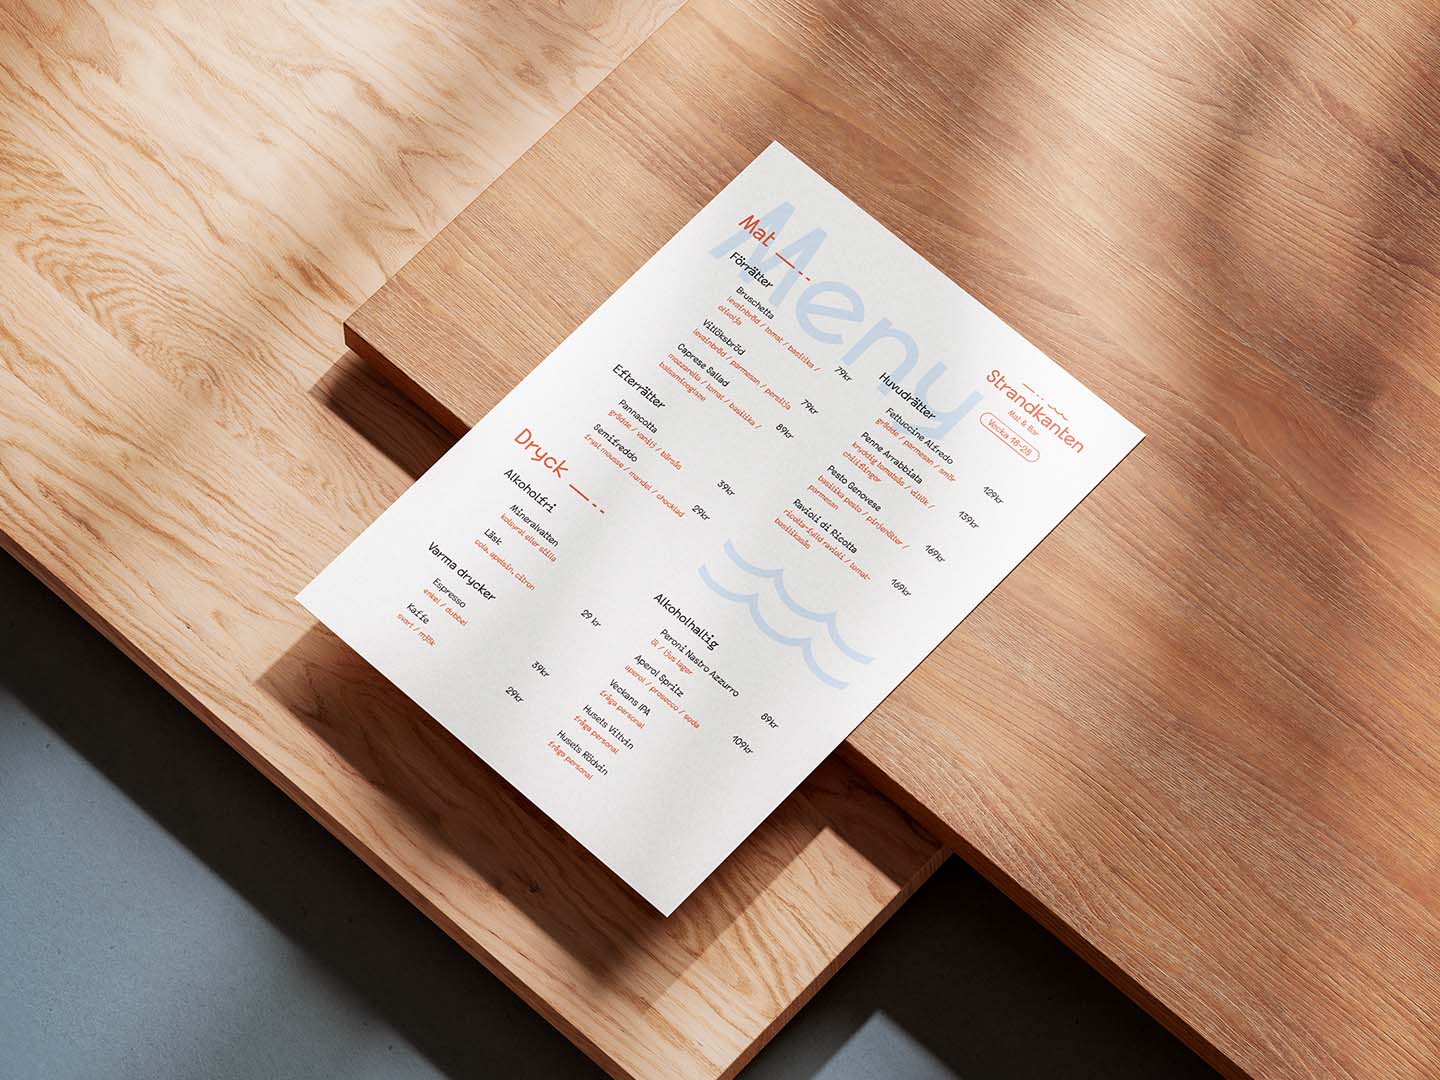 Meny
Mat
Förrätter
Bruschetta
levainbröd / tomat / basilika /
olivolja
79kr
Vitlöksbröd
levainbröd / parmesan / persilja
79kr
Caprese Sallad
mozzarella / tomat / basilika /
balsamicoglaze
89kr
Efterrätter
Pannacotta
grädde / vanilj / bärsås
39kr
Semifreddo
fryst mousse / mandel / choklad
29kr
Huvudrätter
Fettuccine Alfredo
grädde / parmesan / smör
129kr
Penne Arrabbiata
kryddig tomatsås / vitlök /
chiliflingor
139kr
Pesto Genovese
basilika pesto / pinjenötter /
parmesan
169kr
Ravioli di Ricotta
ricotta-fylld ravioli / tomat-
basilikasås
169kr
Strandkanten
Mat & Bar
Vecka 18-26
Dryck
Alkoholfri
Mineralvatten
kolsyrat eller stilla
Läsk
cola, apelsin, citron
29 kr
Varma drycker
Espresso
enkel / dubbel
39kr
Kaffe
svart / mjölk
29kr
Alkoholhaltig
Peroni Nastro Azzurro
öl / ljus lager
89kr
Aperol Spritz
aperol / prosecco / soda
109kr
Veckans IPA
fråga personal
Husets Vittvin
fråga personal
Husets Rödvin
fråga personal